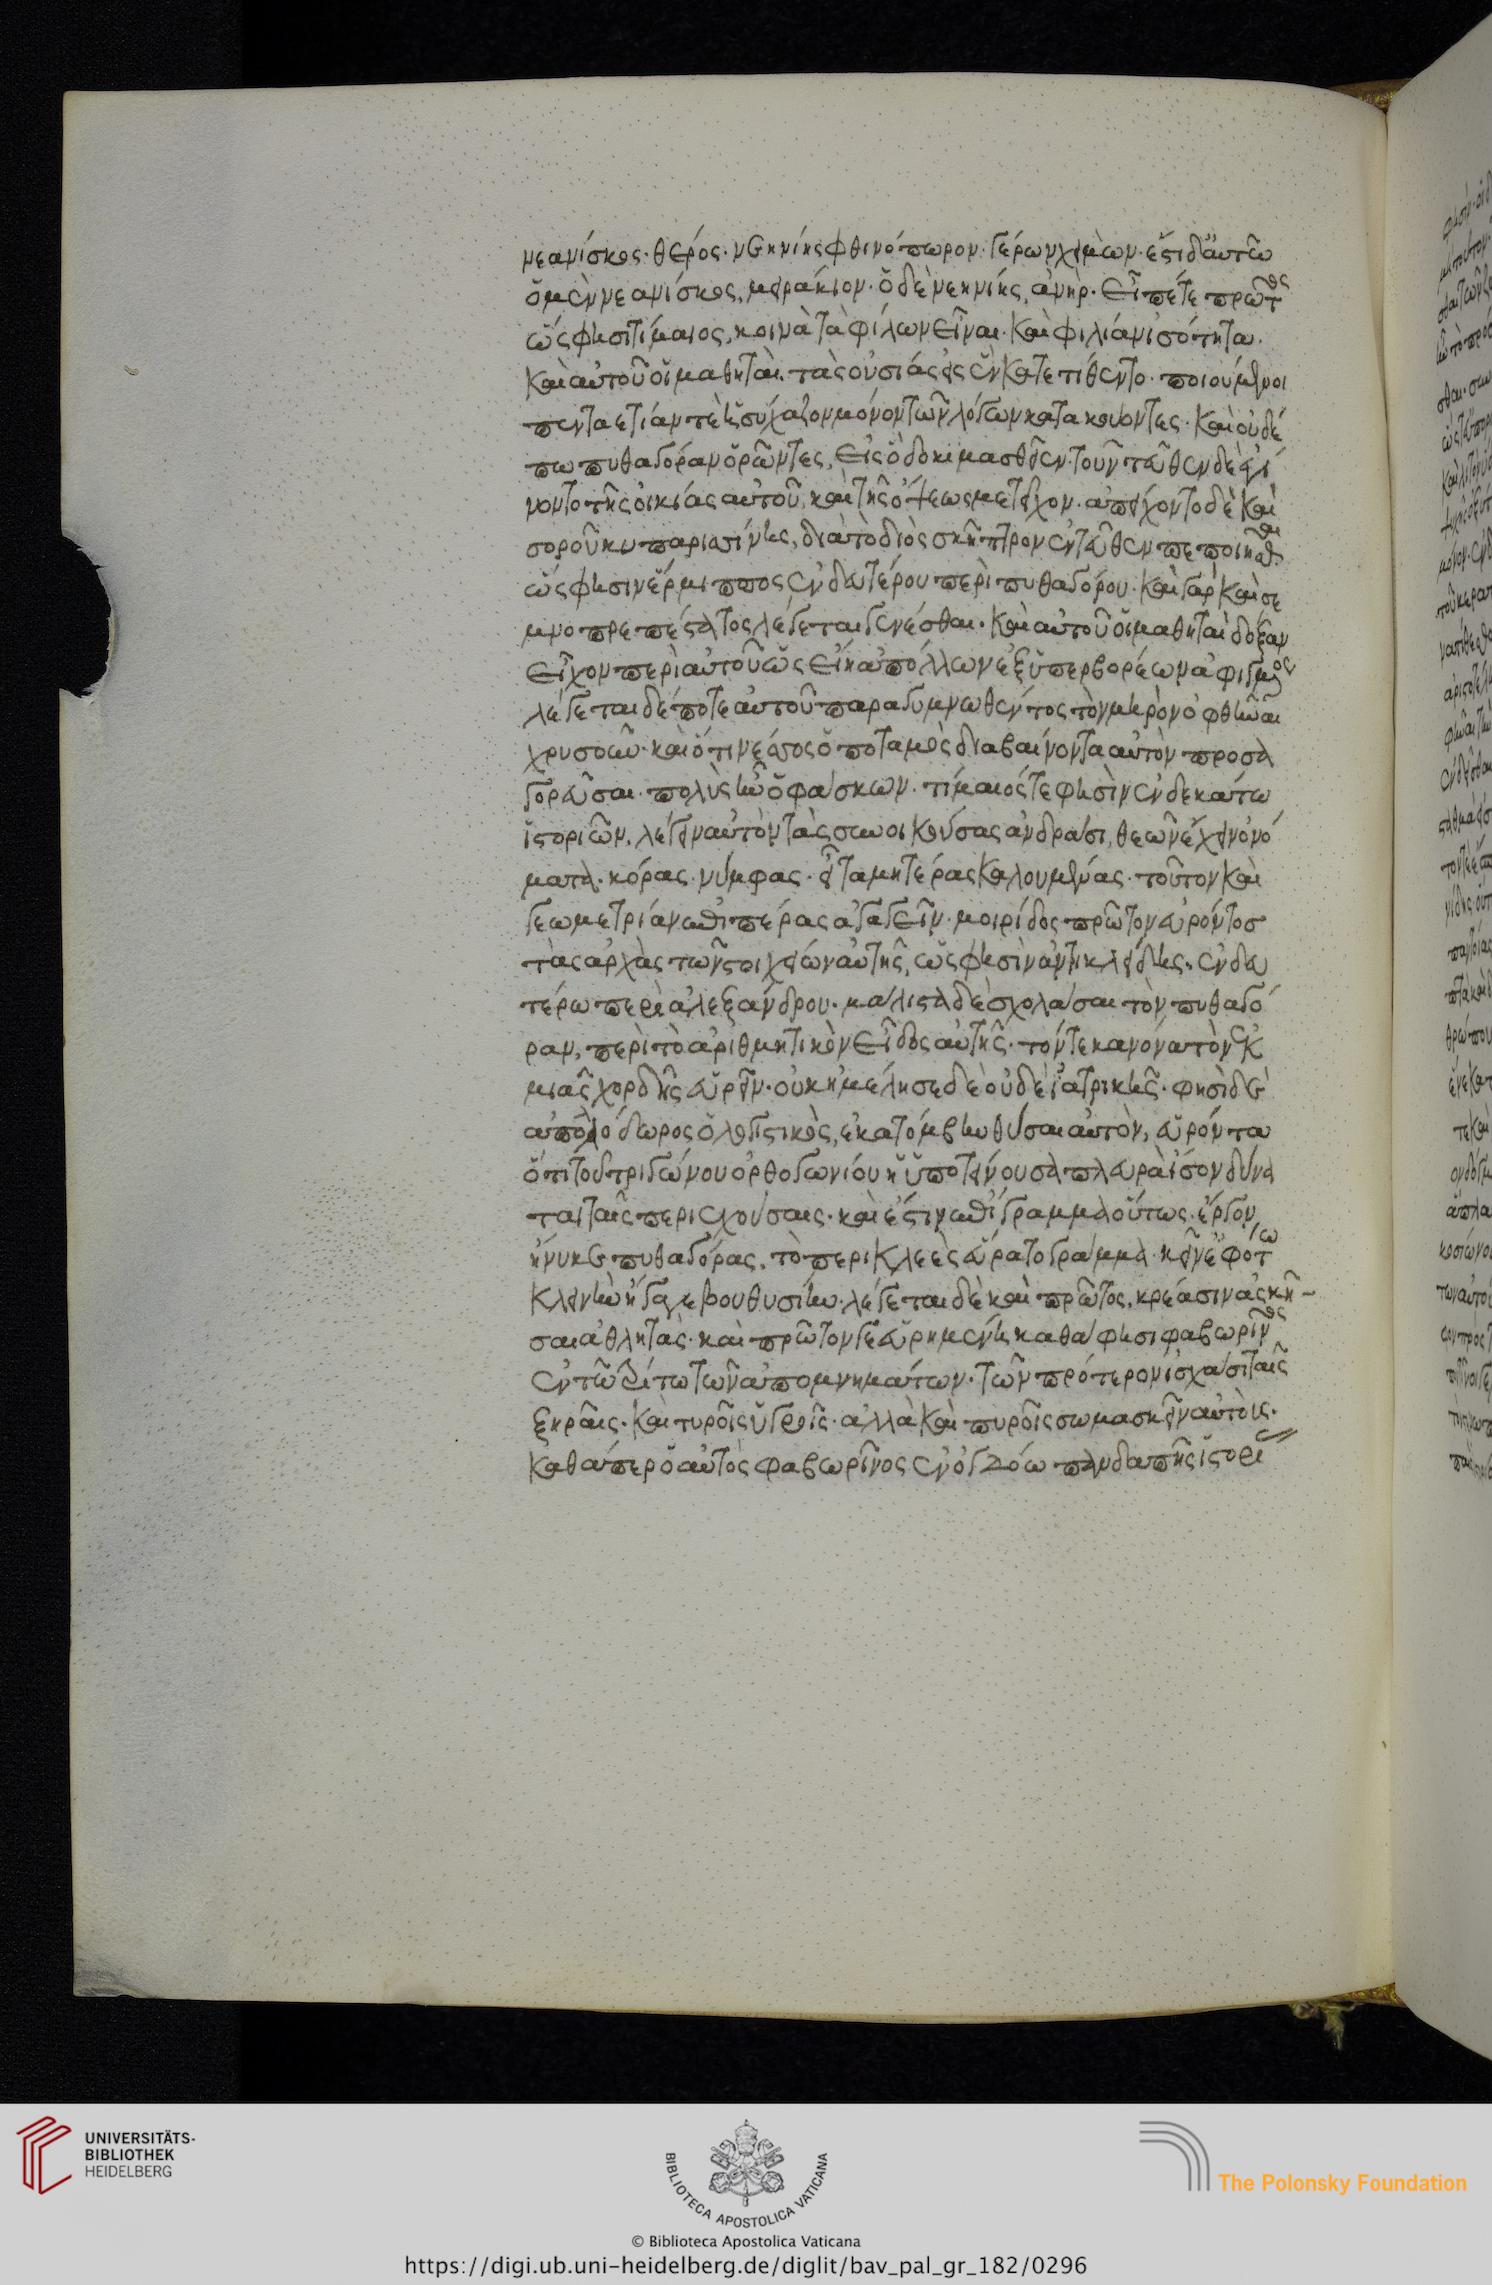 νεανίσκος· θέρος· νεηνίης φθινόπωρον· γέρων χειμών. ἔστι δ' αὐτῶ
ὁ μὲν νεανίσκος, μειράκιον· ὁ δὲ νεηνίης, ἀνήρ. εἶπέ τε πρῶτος
ὥς φησι τίμαιος, κοινὰ τὰ φίλων εἶναι. καὶ φιλίαν ἰσότητα.
καὶ αὐτοῦ οἱ μαθηταὶ. τὰς οὐσίας εἰς ἓν κατετίθεντο. ποιούμενοι
πενταετίαν τε ἡσύχαζον μόνον τῶν λόγων κατακούοντες. καὶ οὐδέ
πω πυθαγόραν ὁρῶντες, εἰς ὃ δοκιμασθεῖεν. τοὐνταῦθεν δὲ ἐγί
νοντο τῆς οἰκίας αὐτοῦ, καὶ τῆς ὄψεως μετεῖχον. ἀπείχοντο δὲ καὶ
σοροῦ κυπαρισίνης, διὰ τὸ διὸς σκῆπτρον ἐνταῦθεν πεποιῆσθαι
ὥς φησιν ἕρμιππος ἐν δευτέρου περὶ πυθαγόρου. καὶ γὰρ καὶ σε
μνοπρεπέστατος λέγεται γενέσθαι. καὶ αὐτοῦ οἱ μαθηταὶ δόξαν
εἶχον περὶ αὐτοῦ ὡς εἴη ἀπόλλων ἐξ ὑπερβορέων ἀφιγμένος
λέγεται δέ ποτε αὐτοῦ παραγυμνωθέντος τὸν μηρὸν ὀφθῆναι
χρυσοῦν. καὶ ὅτι νέσσος ὁ ποταμὸς διαβαίνοντα αὐτὸν προσα
γορεῦσαι. πολὺς ἦν ὁ φάσκων. τίμαιός τε φησὶν ἐν δεκάτω
ἱστοριῶν. λέγειν αὐτὸν τὰς συνοικούσας ἀνδράσι, θεῶν ἔχειν ὀνό
ματα. κόρας. νύμφας. εἶτα μητέρας καλουμένας. τοῦτον καὶ
γεωμετρίαν ἐπὶ πέρας ἀγαγεῖν. μοιρίδος πρῶτον εὑρόντος
τὰς ἀρχὰς τῶν στοιχείων αὐτῆς, ὥς φησὶν ἀντικλείδης. ἐν δευ
τέρω περὶ ἀλεξάνδρου. μάλιστα δὲ σχολάσαι τὸν πυθαγό
ραν, περὶ τὸ ἀριθμητικὸν εἶδος αὐτῆς. τόν τε κανόνα τὸν ἐκ
μιᾶς χορδῆς εὑρεῖν. οὐκ ἠμέλησε δὲ οὐδὲ ἰατρικῆς. φησὶ δὲ
ἀπολλόδωρος ὁ λογιστικὸς, ἑκατόμβην θύσαι αὐτὸν, εὑρόντα
ὅτι τοῦ τριγώνου ὀρθογωνίου ἡ ὑποτείνουσα πλευρὰ ἴσον δύνα
ται ταῖς περιεχούσαις. καὶ ἔστιν ἐπίγραμμα οὕτως. ἔργον
ἤνυκε πυθαγόρας, τὸ περικλεὲς εὕρατο γράμμα. κεῖν' ἐφ' ὅτω
κλεινὴν ἤγαγε βουθυσίην. λέγεται δὲ καὶ πρῶτος, κρέασιν ἀσκῆ
σαι ἀθλητὰς. καὶ πρῶτόν γε εὐρημένη καθά φησι φαβωρῖνος
ἐν τῶ τρίτω τῶν ἀπομνημάτων. τῶν πρότερον ἰσχάσι ταῖς
ξηραῖς. καὶ τυροῖς ὑγροῖς. ἀλλὰ καὶ πυροῖς σωμασκεῖν αὐτοὺς.
καθάπερ ὁ αὐτὸς φαβωρῖνος ἐν ὀγδόω παντοδαπῆς ἱστορί
UNIVERSITÄTS-
BIBLIOTHEK
HEIDELBERG
BIBLIOTECA APOSTOLICA VATICANA
The Polonsky Foundation
© Biblioteca Apostolica Vaticana
https://digi.ub.uni-heidelberg.de/diglit/bav_pal_gr_182/0296